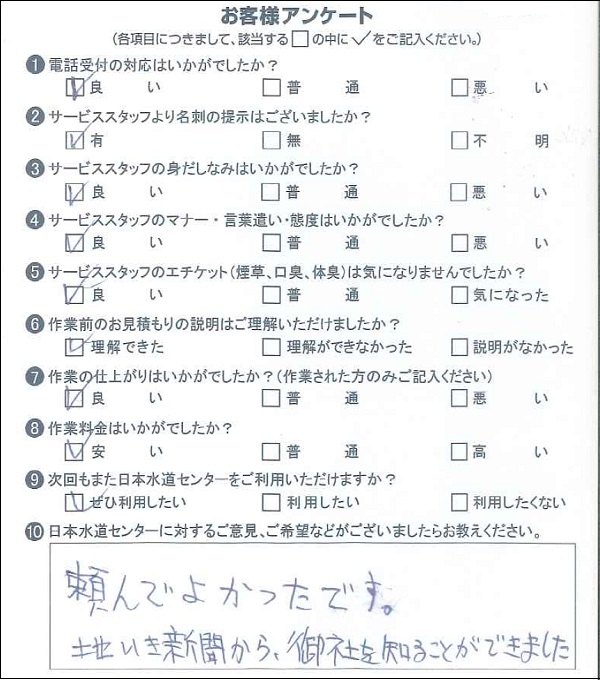 お客様アンケート
(各項目につきまして、該当する□の中に✓をご記入ください。)
❶電話受付の対応はいかがでしたか?
☑良い □普通 □悪い
❷サービススタッフより名刺の提示はございましたか?
☑有 □無 □不明
❸サービススタッフの身だしなみはいかがでしたか?
☑良い □普通 □悪い
❹サービススタッフのマナー・言葉遣い・態度はいかがでしたか?
☑良い □普通 □悪い
❺サービススタッフのエチケット(煙草、口臭、体臭)は気になりませんでしたか?
☑良い □普通 □気になった
❻作業前のお見積もりの説明はご理解いただけましたか?
☑理解できた □理解ができなかった □説明がなかった
❼作業の仕上がりはいかがでしたか?(作業された方のみご記入ください)
☑良い □普通 □悪い
❽作業料金はいかがでしたか?
☑安い □普通 □高い
❾次回もまた日本水道センターをご利用いただけますか?
☑ぜひ利用したい □利用したい □利用したくない
❿日本水道センターに対するご意見、ご希望などがございましたらお教えください。
頼んでよかったです。
土地いき新聞から、御社を知ることができました